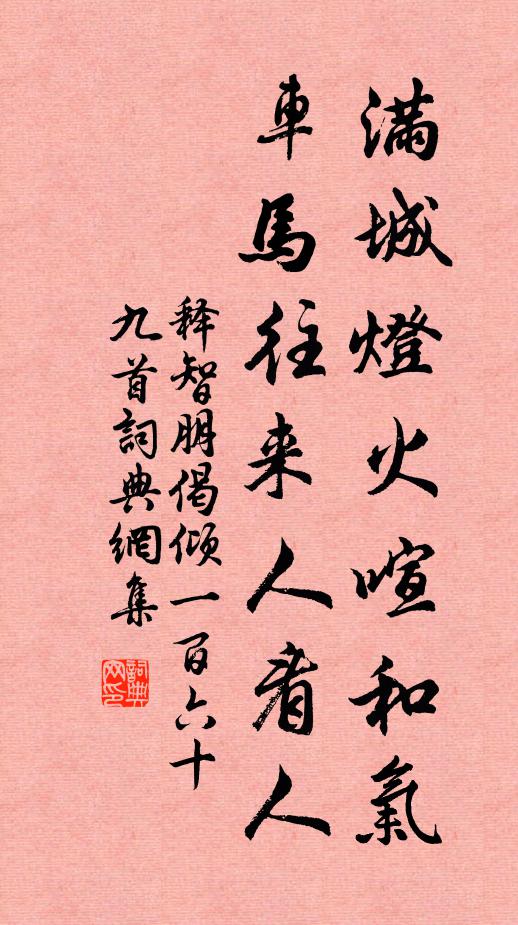 滿城燈火喧和氣
車馬往来人看人
释智朋偈傾一百六十
九首詞典網集
詞典网印